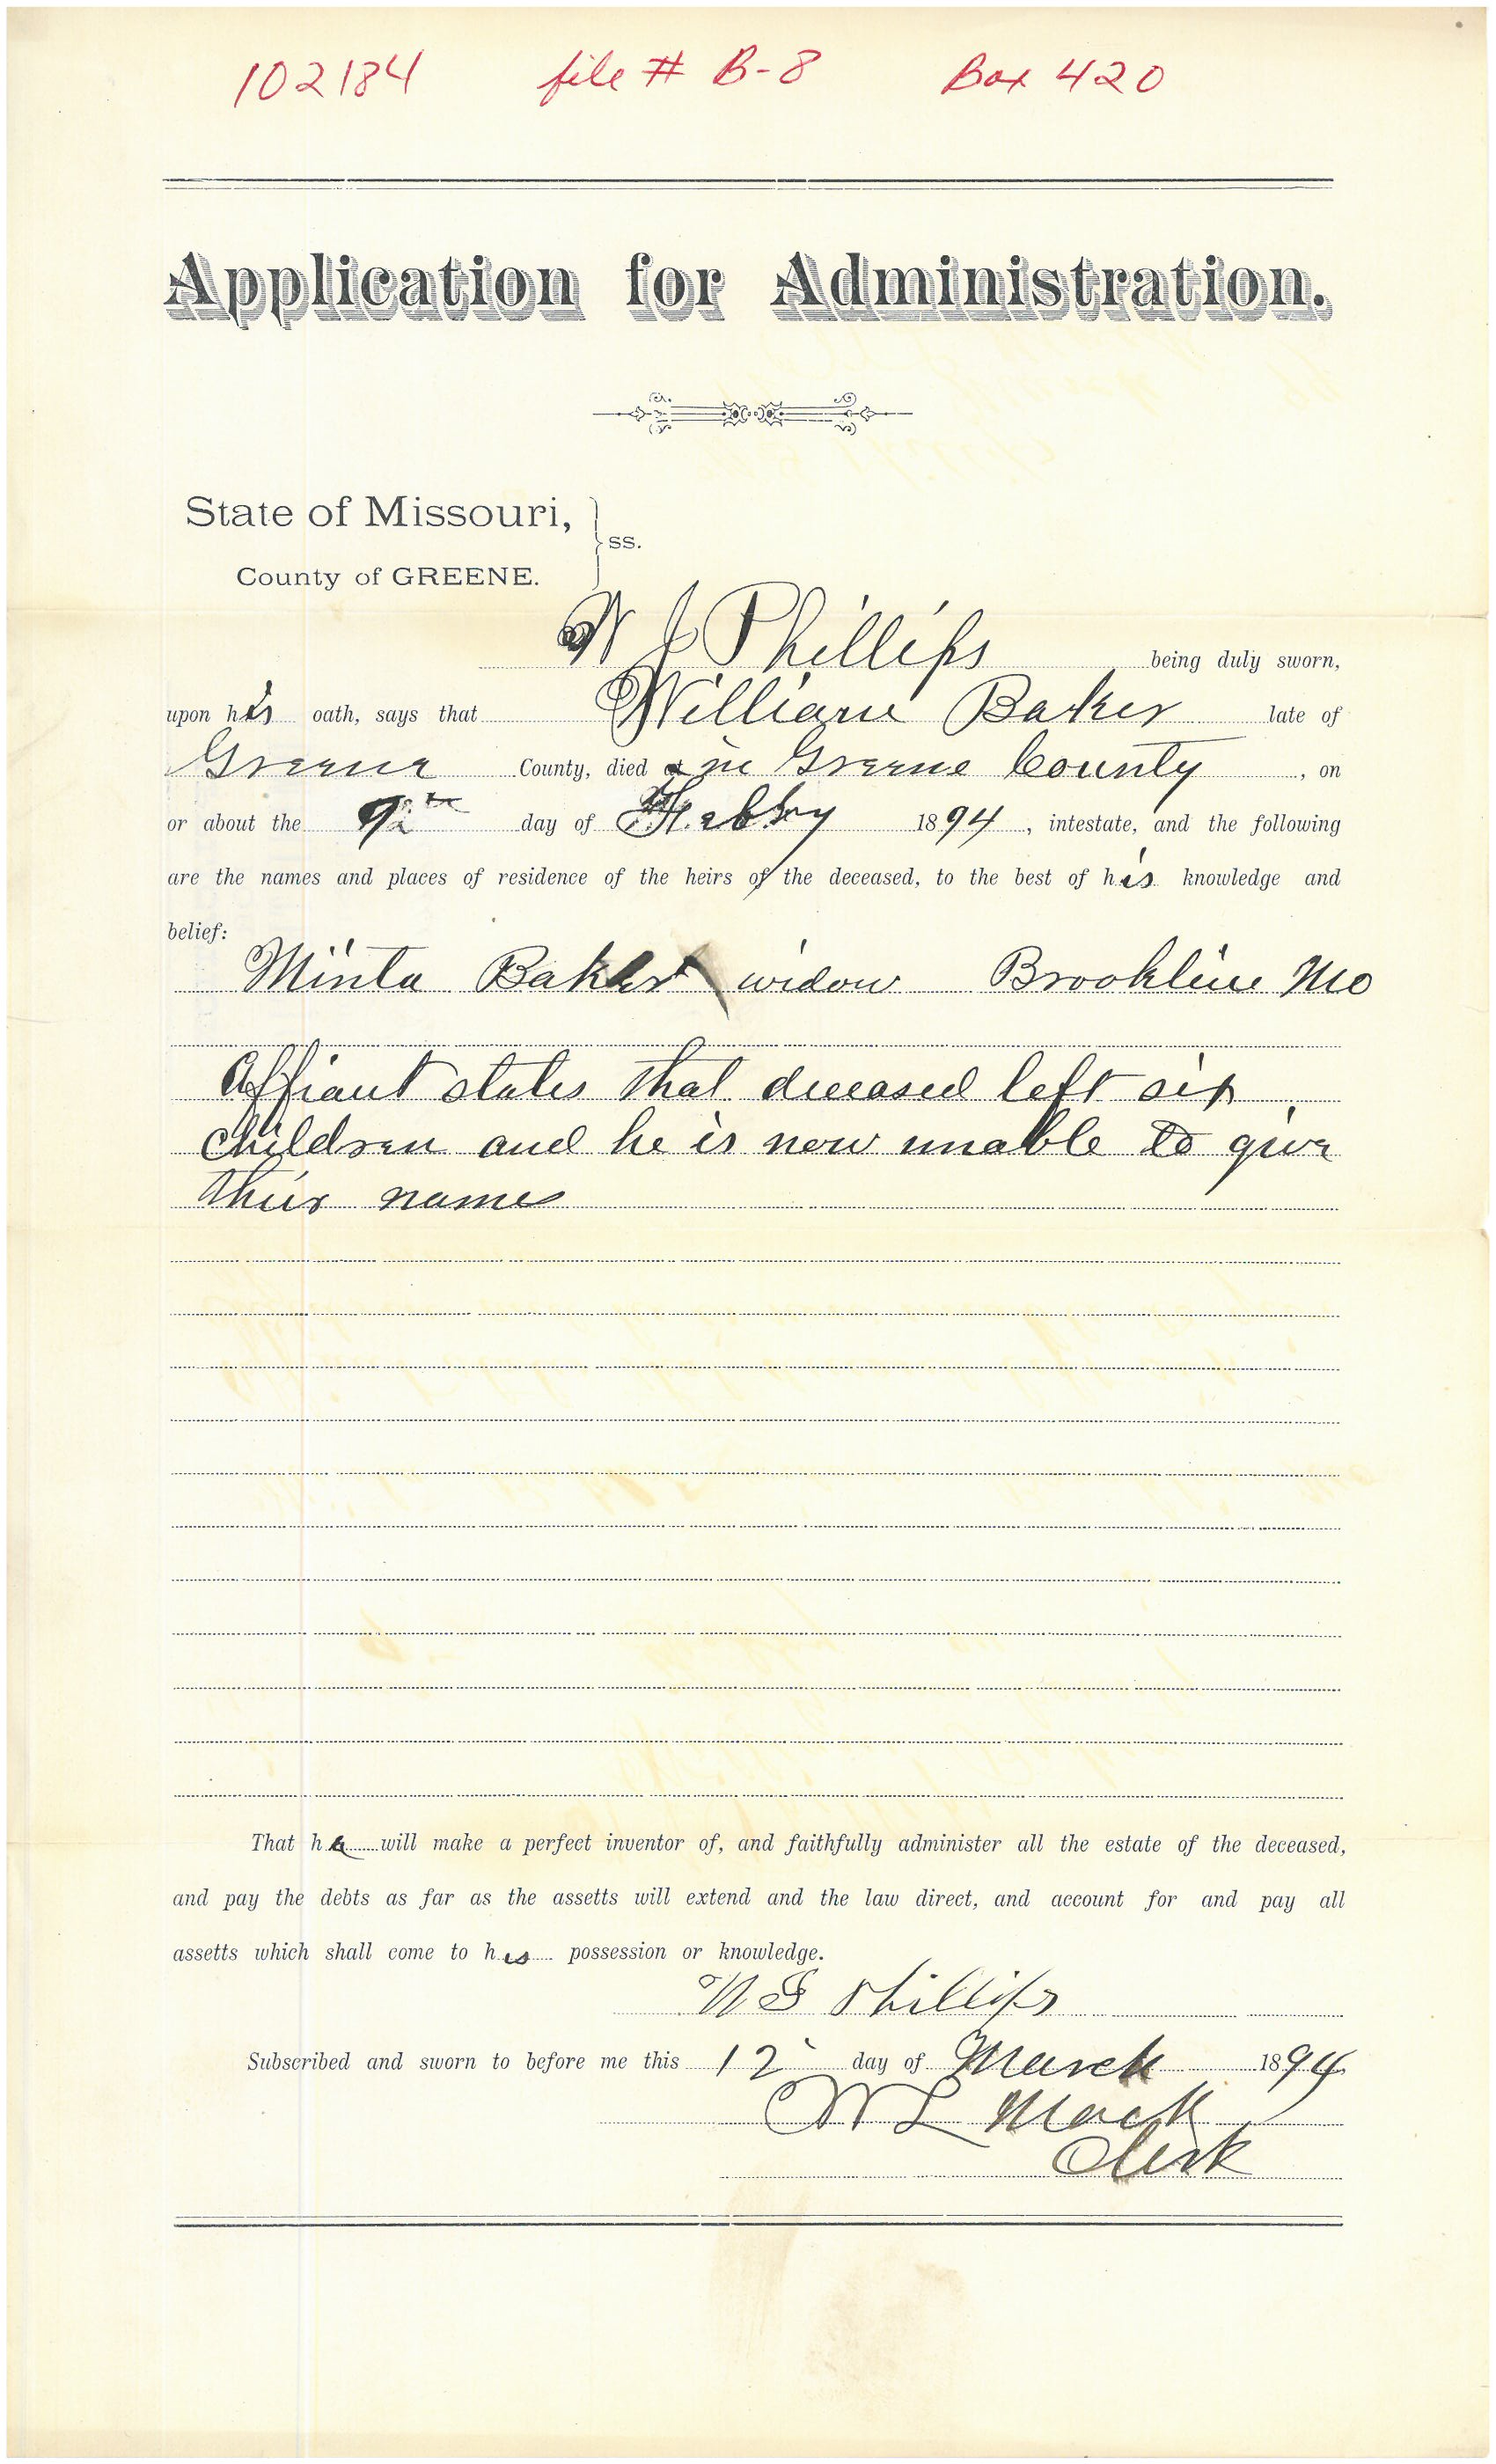 102184 file # B-8 Box 420
Application for Administration.
State of Missouri,
ss.
County of GREENE.
Phillips being duly sworn,
upon his oath, says that William Baker late of
Greene County, died in Greene County, on
or about the day of Febry 1894, intestate, and the following
are the names and places of residence of the heirs of the deceased, to the best of his knowledge and
belief:
Minta Baker widow Brookline Mo
Affiant states that deceased left six
children and he is now unable to give
their names
That he will make a perfect inventor of, and faithfully administer all the estate of the deceased,
and pay the debts as far as the assetts will extend and the law direct, and account for and pay all
assetts which shall come to his possession or knowledge.
Phillips
Subscribed and sworn to before me this 12 day of March 1894
W L Mack
Clerk